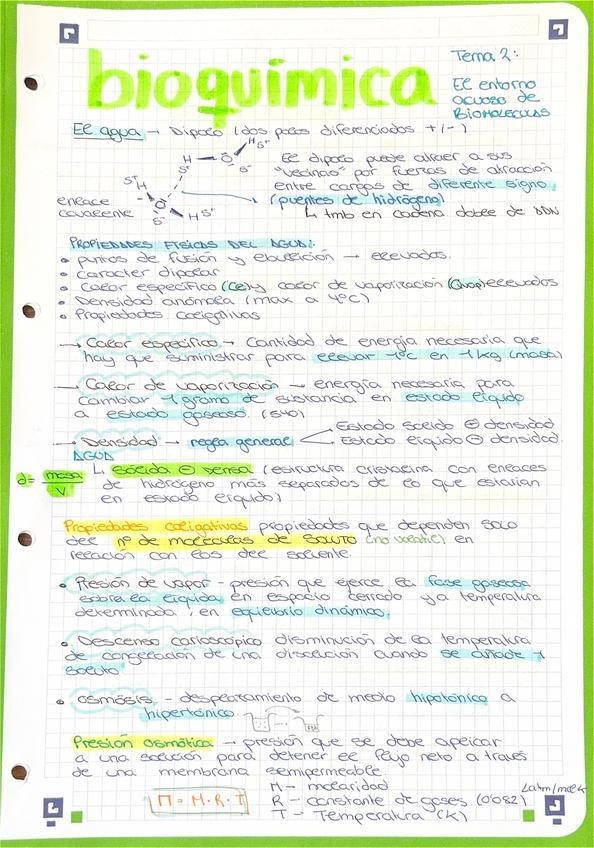 bioquímica
Tema 2:
El entorno
acuoso de
Biomoleculas
El agua → Dipolo (dos polos diferenciados +/-)
H — O H δ+
δ+ δ-
δ+ H
O H δ+
δ-
enlace
covalente
El dipolo puede atraer a sus
"vecinas" por fuerzas de atracción
entre cargas de diferente signo.
(puentes de hidrógeno)
↳ tmb en cadena doble de ADN
PROPIEDADES FISICAS DEL AGUA:
• puntos de fusión y ebullición → elevados.
• caracter dipolar
• Calor especifico (Ce) y calor de vaporización (Qvap) elevados
• Densidad anómala (max a 4ºC)
• Propiedades coligativas
→ Calor especifico → Cantidad de energía necesaria que
hay que suministrar para elevar 1ºc en 1 kg (masa)
→ Calor de vaporización → energía necesaria para
cambiar 1 gramo de sustancia en estado líquido
a estado gaseoso (540)
→ Densidad → regla general
Estado sólido ⊕ densidad
Estado líquido ⊖ densidad.
AGUA
↳ sólida ⊖ densa (estructura cristalina con enlaces
d = masa / V
de hidrógeno más separados de lo que estarían
en estado líquido)
Propiedades coligativas propiedades que dependen solo
del nº de moléculas de soluto (no volátil) en
relación con las del solvente.
• Presión de vapor - presión que ejerce la fase gaseosa
sobre la líquida en espacio cerrado y a temperatura
determinada / en equilibrio dinámico.
• Descenso crioscópico disminución de la temperatura
de congelación de una disolución cuando se añade 1
soluto
• Osmosis - desplazamiento de medio hipotónico a
hipertónico
Presión osmótica → presión que se debe aplicar
a una solución para detener el flujo neto a través
de una membrana semipermeable.
Π = M · R · T
M - molaridad
R - constante de gases (0'082) Latm/molK
T - Temperatura (K)